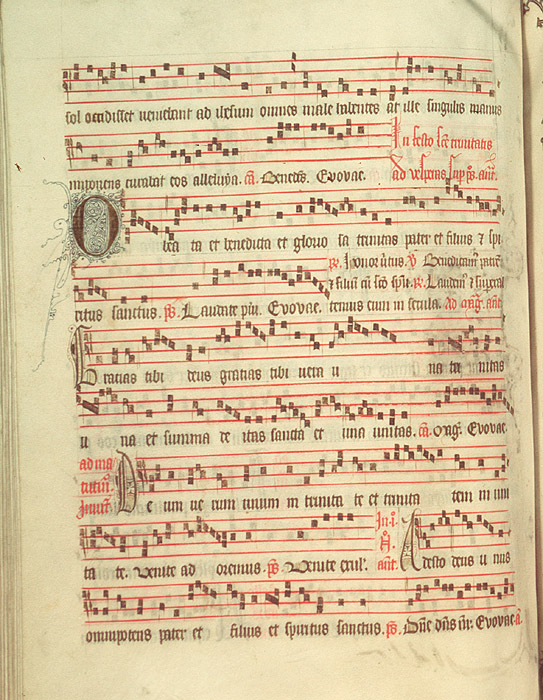 sol occidisset veniebant ad iesum omnes male habentes at ille singulis manus
imponens curabat eos alleluya. ca. Benedcs. Evovae.
In festo sce trinitatis
ad vesperas sup ps. ant.
O bea ta et benedicta et glorio sa trinitas pater et filius et spi
ritus sanctus. ps. Laudate pui. Evovae.
V. Benedicam patrem
et filium cum sco spu. R. Laudem et superexal
temus eum in secula. Ad mag. ant.
Gratias tibi deus gratias tibi vera u na tri nitas
u na et summa de itas sancta et una unitas. ca. Mag. Evovae.
ad ma
tutin.
Invit.
De um ve rum unum in trinita te et trinita tem in uni
ta te. Venite ad oremus. ps. Venite exul.
In .i.
N.
ant.
Adesto deus u nus
omnipotens pater et filius et spiritus sanctus. ps. Dne dns nr. Evovae. a.